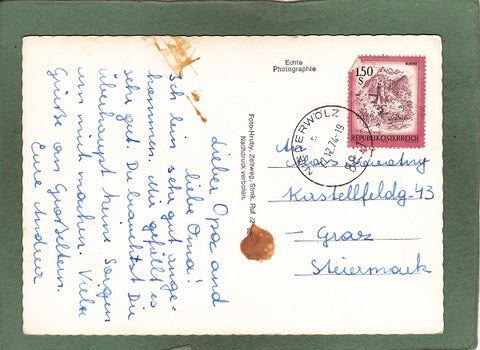 Lieber Opa und
liebe Oma!
Ich bin sehr gut ange-
kommen. Mir gefällt es
sehr gut. Du brauchst Dir
überhaupt keine Sorgen
um mich machen. Viele
Grüße an Großeltern.
Eure Andrea
Foto-Hruby, Zeltweg, Stmk. Ruf
Nachdruck verboten.
Echte
Photographie
1.50
S
REPUBLIK ÖSTERREICH
NIEDERWÖLZ
12.74-18
An
Kastellfeldg. 43
- Graz
Steiermark